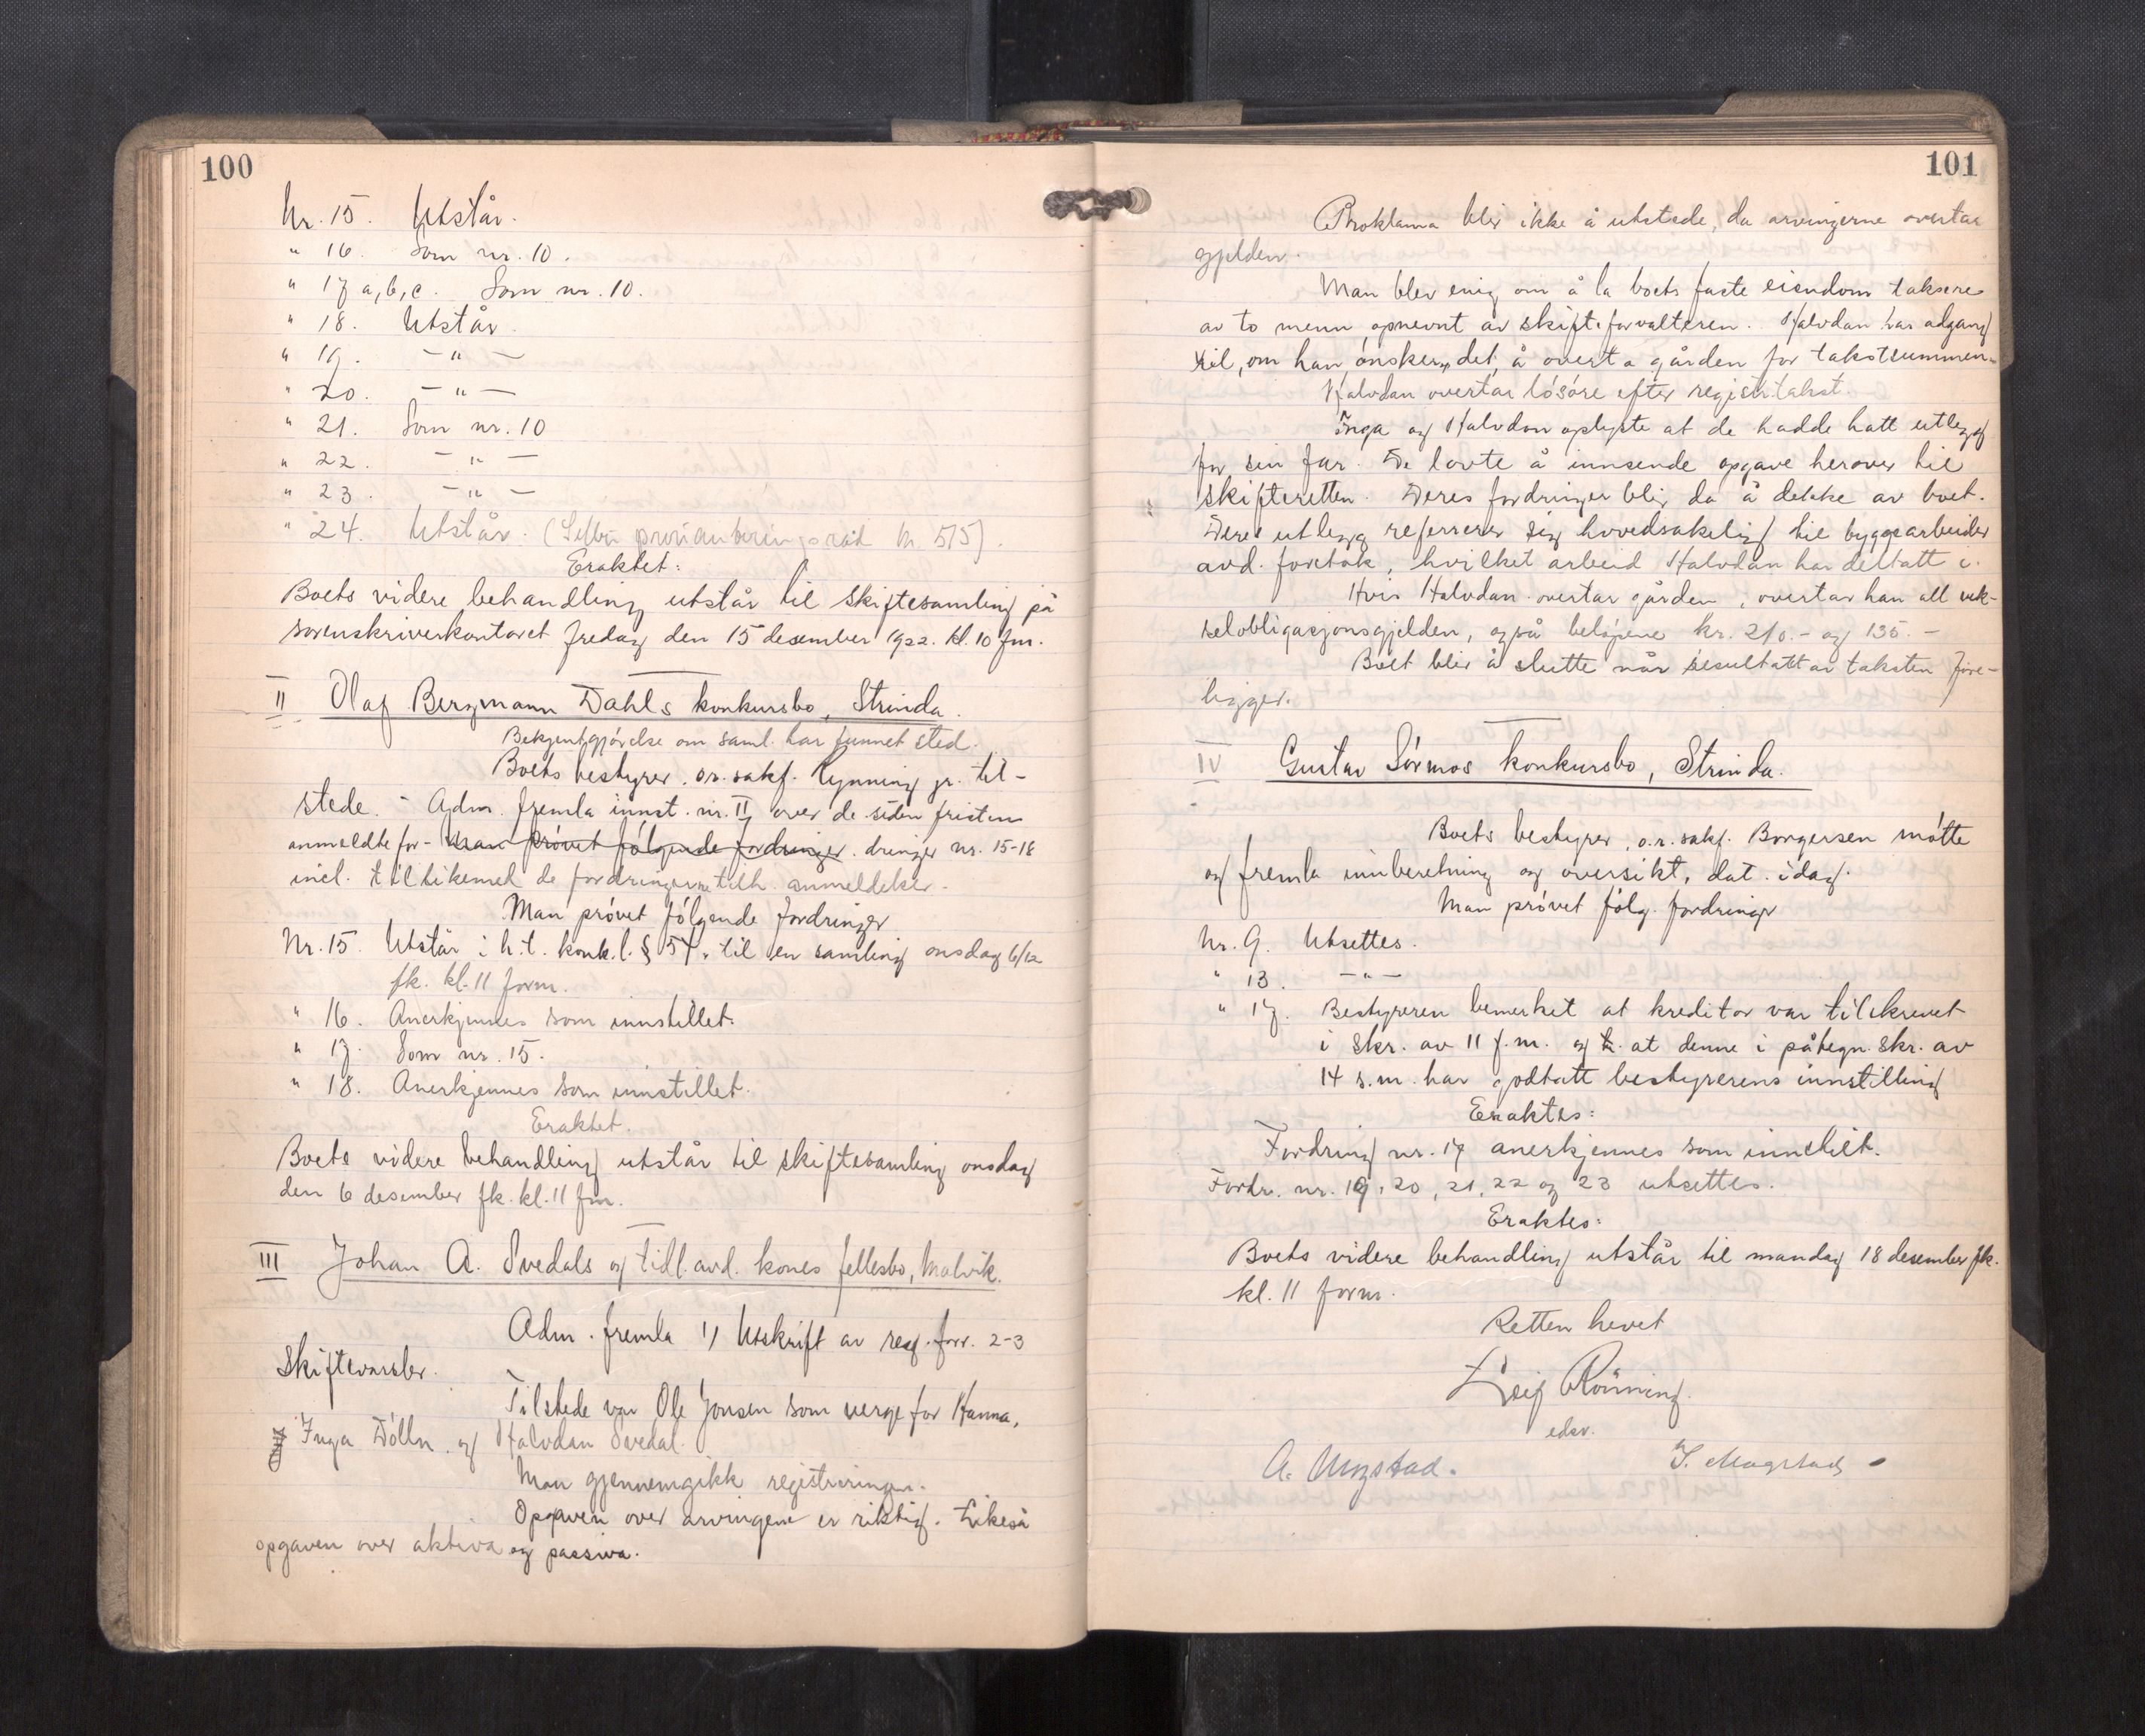 100
Nr. 15. Utstår.
" 16. Som nr. 10.
" 17 a, b, c. Som nr. 10.
" 18. Utstår.
" 19. — " —
" 20. — " —
" 21. Som nr. 10
" 22. — " —
" 23. — " —
" 24. Utstår. (Selbu provianteringsråd kr. 515).
Eraktet:
Boets videre behandling utstår til skiftesamling på
sorenskriverkontoret fredag den 15 desember 1922. kl. 10 fm.
II Olaf Bergmann Dahls konkursbo, Strinda.
Bekjentgjørelse om saml. har funnet sted.
Boets bestyrer o.r. sakf. Lynning jr. til-
stede. - Adm. fremla innst. nr. II over de siden fristen
anmeldte for- Man prøvet følgende fordringer. dringer nr. 15-18
incl. tillikemed de fordringerne tilh. anmeldelser.
Man prøvet følgende fordringer
Nr. 15. Utstår i h.t. konk.l. § 54. til en samling onsdag 6/12
fk. kl. 11 form.
" 16. Anerkjennes som innstillet.
" 17. Som nr. 15.
" 18. Anerkjennes som innstillet.
Eraktet.
Boets videre behandling utstår til skiftesamling onsdag
den 6 desember fk. kl. 11 fm.
III Johan A. Svedals og tidl. avd. kones fellesbo, Malvik.
Adm. fremla 1) Utskrift av reg. forr. 2-3
Skiftevarsler.
Tilstede var Ole Jonsen som verge for Hanna,
Inga Dølln og Halvdan Svedal.
Man gjennemgikk registreringen.
Opgaven over arvingene er riktig. Likeså
opgaven over aktiva og passiva.
101
Proklama blir ikke å utstede, da arvingerne overtar
gjelden.
Man blev enig om å la boets faste eiendom taksere
av to menn opnevnt av skifteforvalteren. Halvdan har adgang
til, om han ønsker det, å overta gården for takstsummen.
Halvdan overtar løsøre efter registr.takst.
Inga og Halvdan oplyste at de hadde hatt utlegg
for sin far. De lovte å innsende opgave herover til
skifteretten. Deres fordringer blir da å dekke av boet.
Deres utlegg referrerer sig hovedsakelig til byggearbeider
avd. foretok, hvilket arbeid Halvdan har deltatt i.
Hvis Halvdan overtar gården, overtar han all vek-
selobligasjonsgjelden, også beløpene kr. 210.- og 135.-
Boet blir å slutte når resultatet av taksten fore-
ligger.
IV Gustav Sørmos konkursbo, Strinda.
Boets bestyrer, o.r. sakf. Borgersen møtte
og fremla innberetning og oversikt, dat. idag.
Man prøvet følg. fordringer
Nr. 9. Utsettes.
" 13. — " —
" 17. Bestyreren bemerket at kreditor var tilskrevet
i skr. av 11 f.m. og at denne i påtegn. skr. av
14 s.m. har godtatt bestyrerens innstilling
Eraktes:
Fordring nr. 17 anerkjennes som innstilt.
Fordr. nr. 19, 20, 21, 22 og 23 utsettes.
Eraktes:
Boets videre behandling utstår til mandag 18 desember fk.
kl. 11 form.
Retten hevet
Leif Rønning.
edsv.
A. Mogstad. I. Mogstad